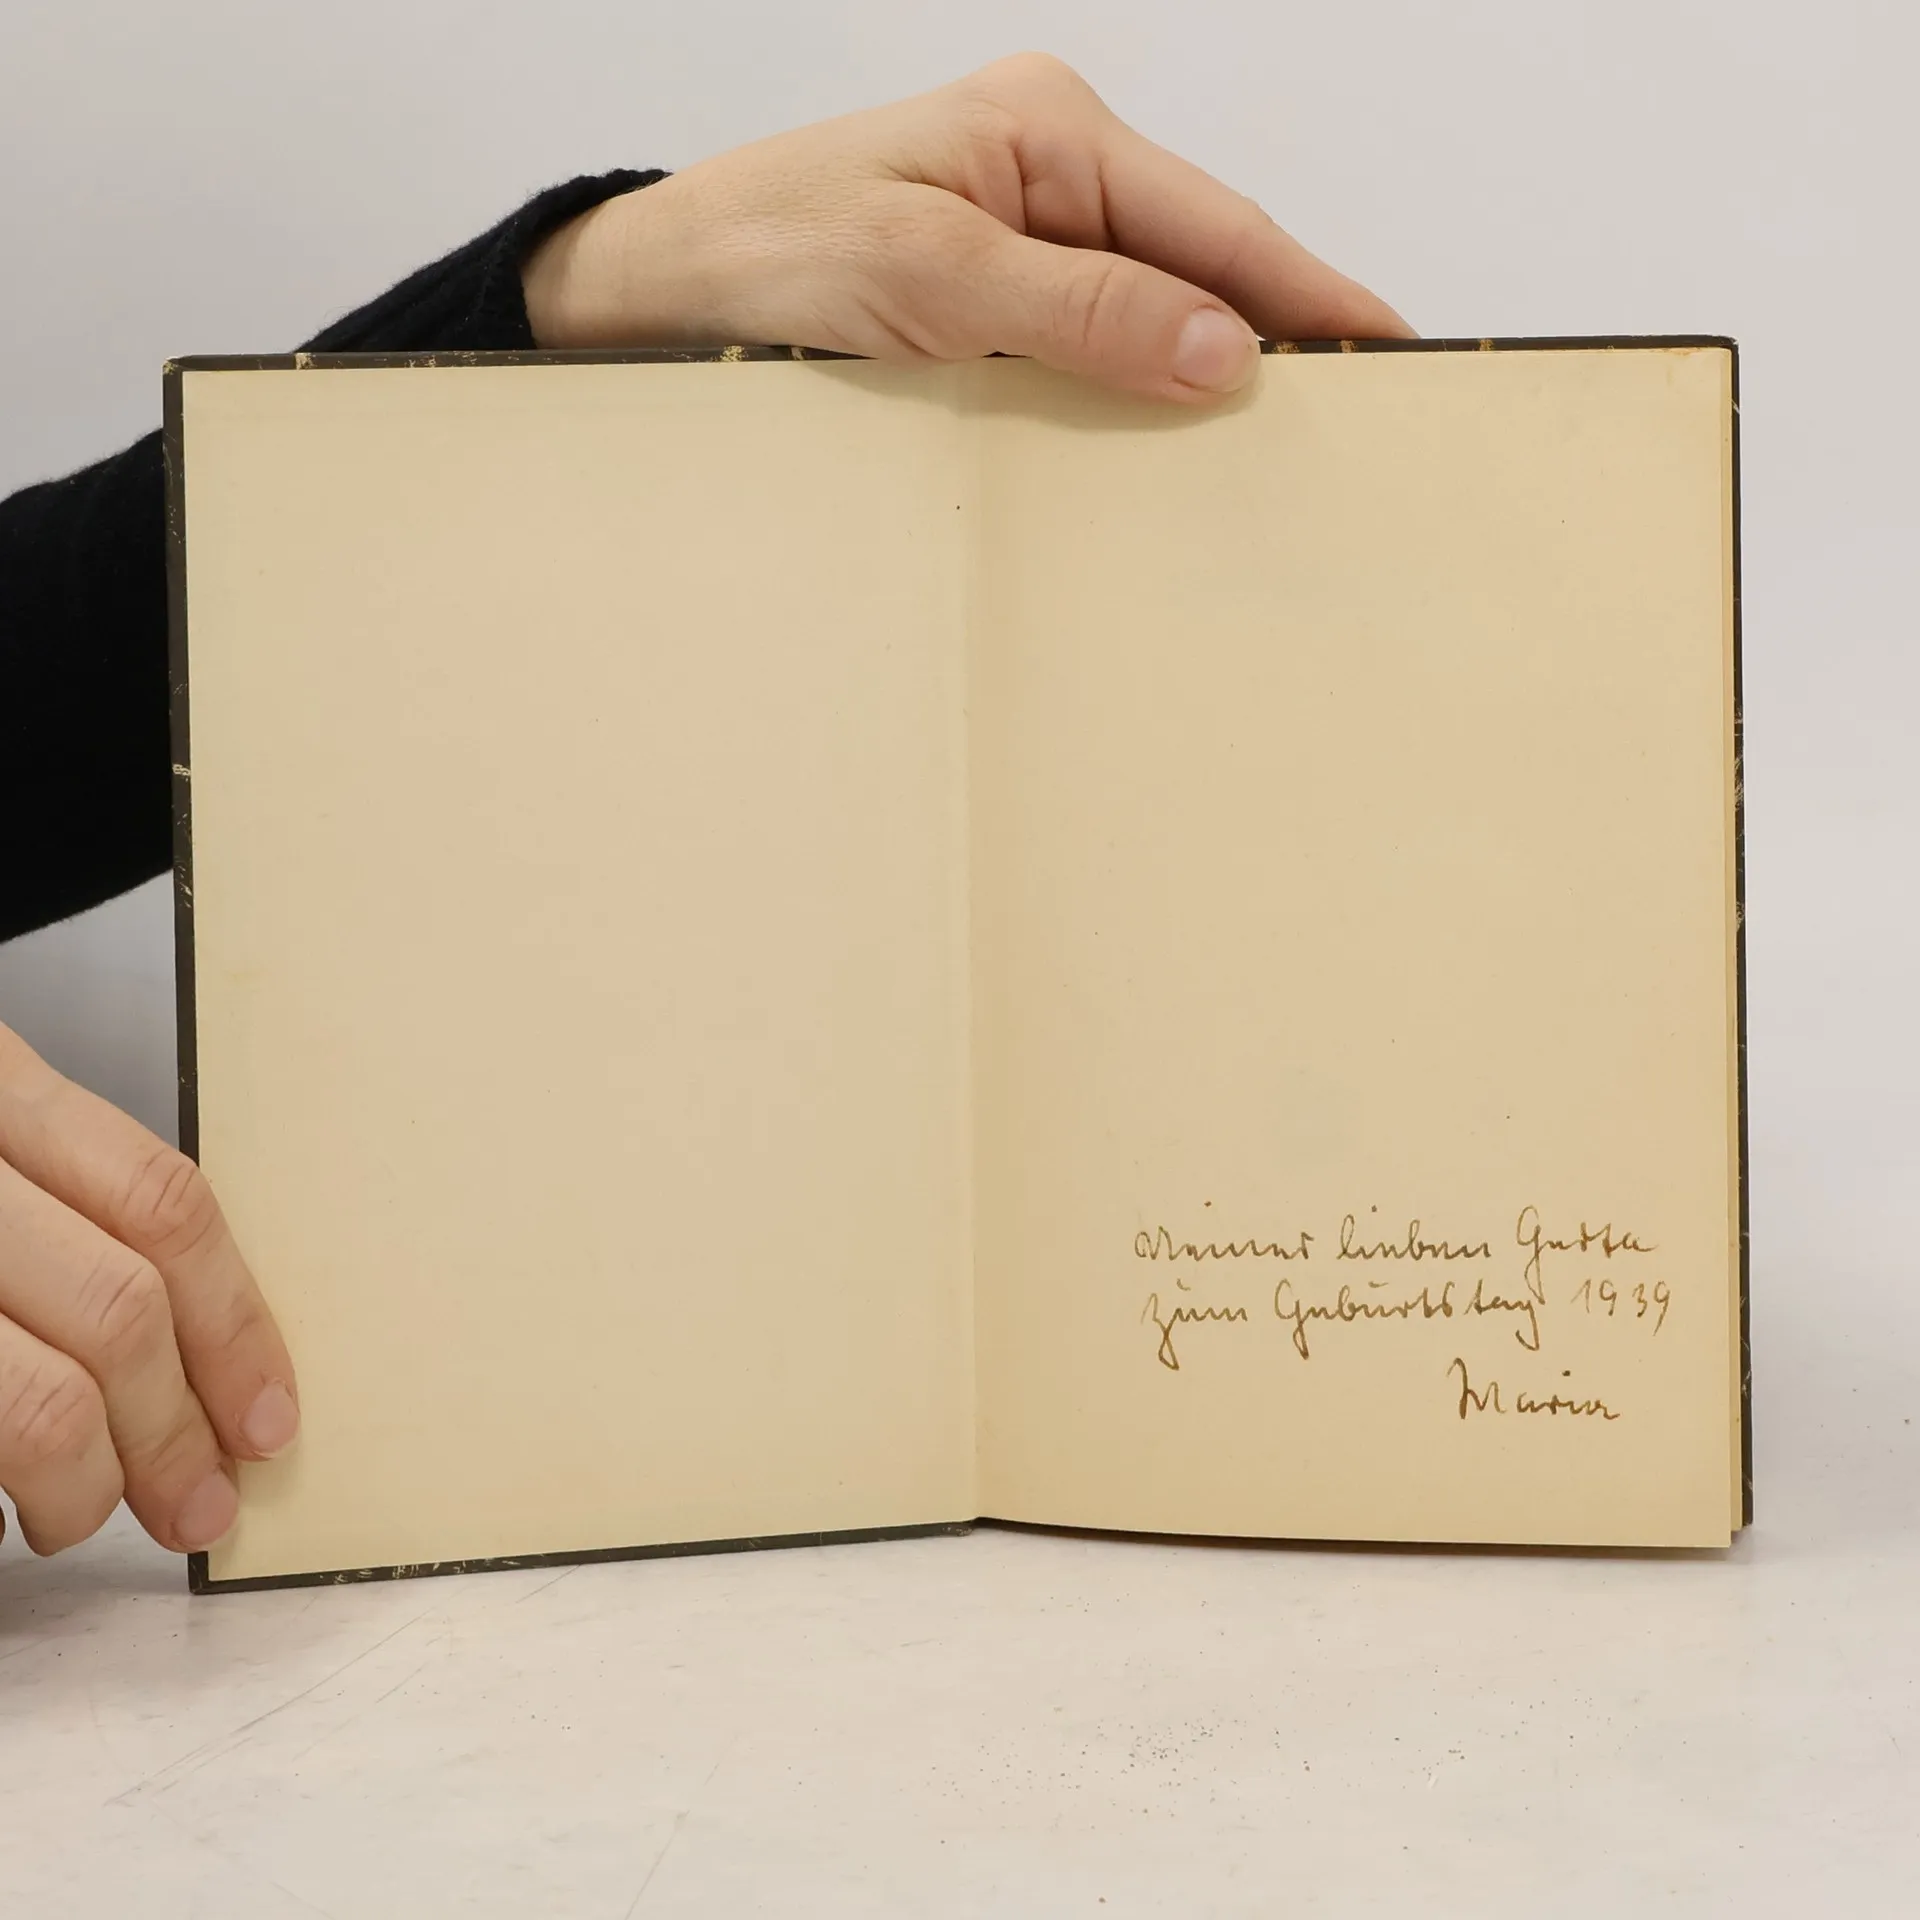 Meiner lieben Gerta
zum Geburtstag 1939
Maria